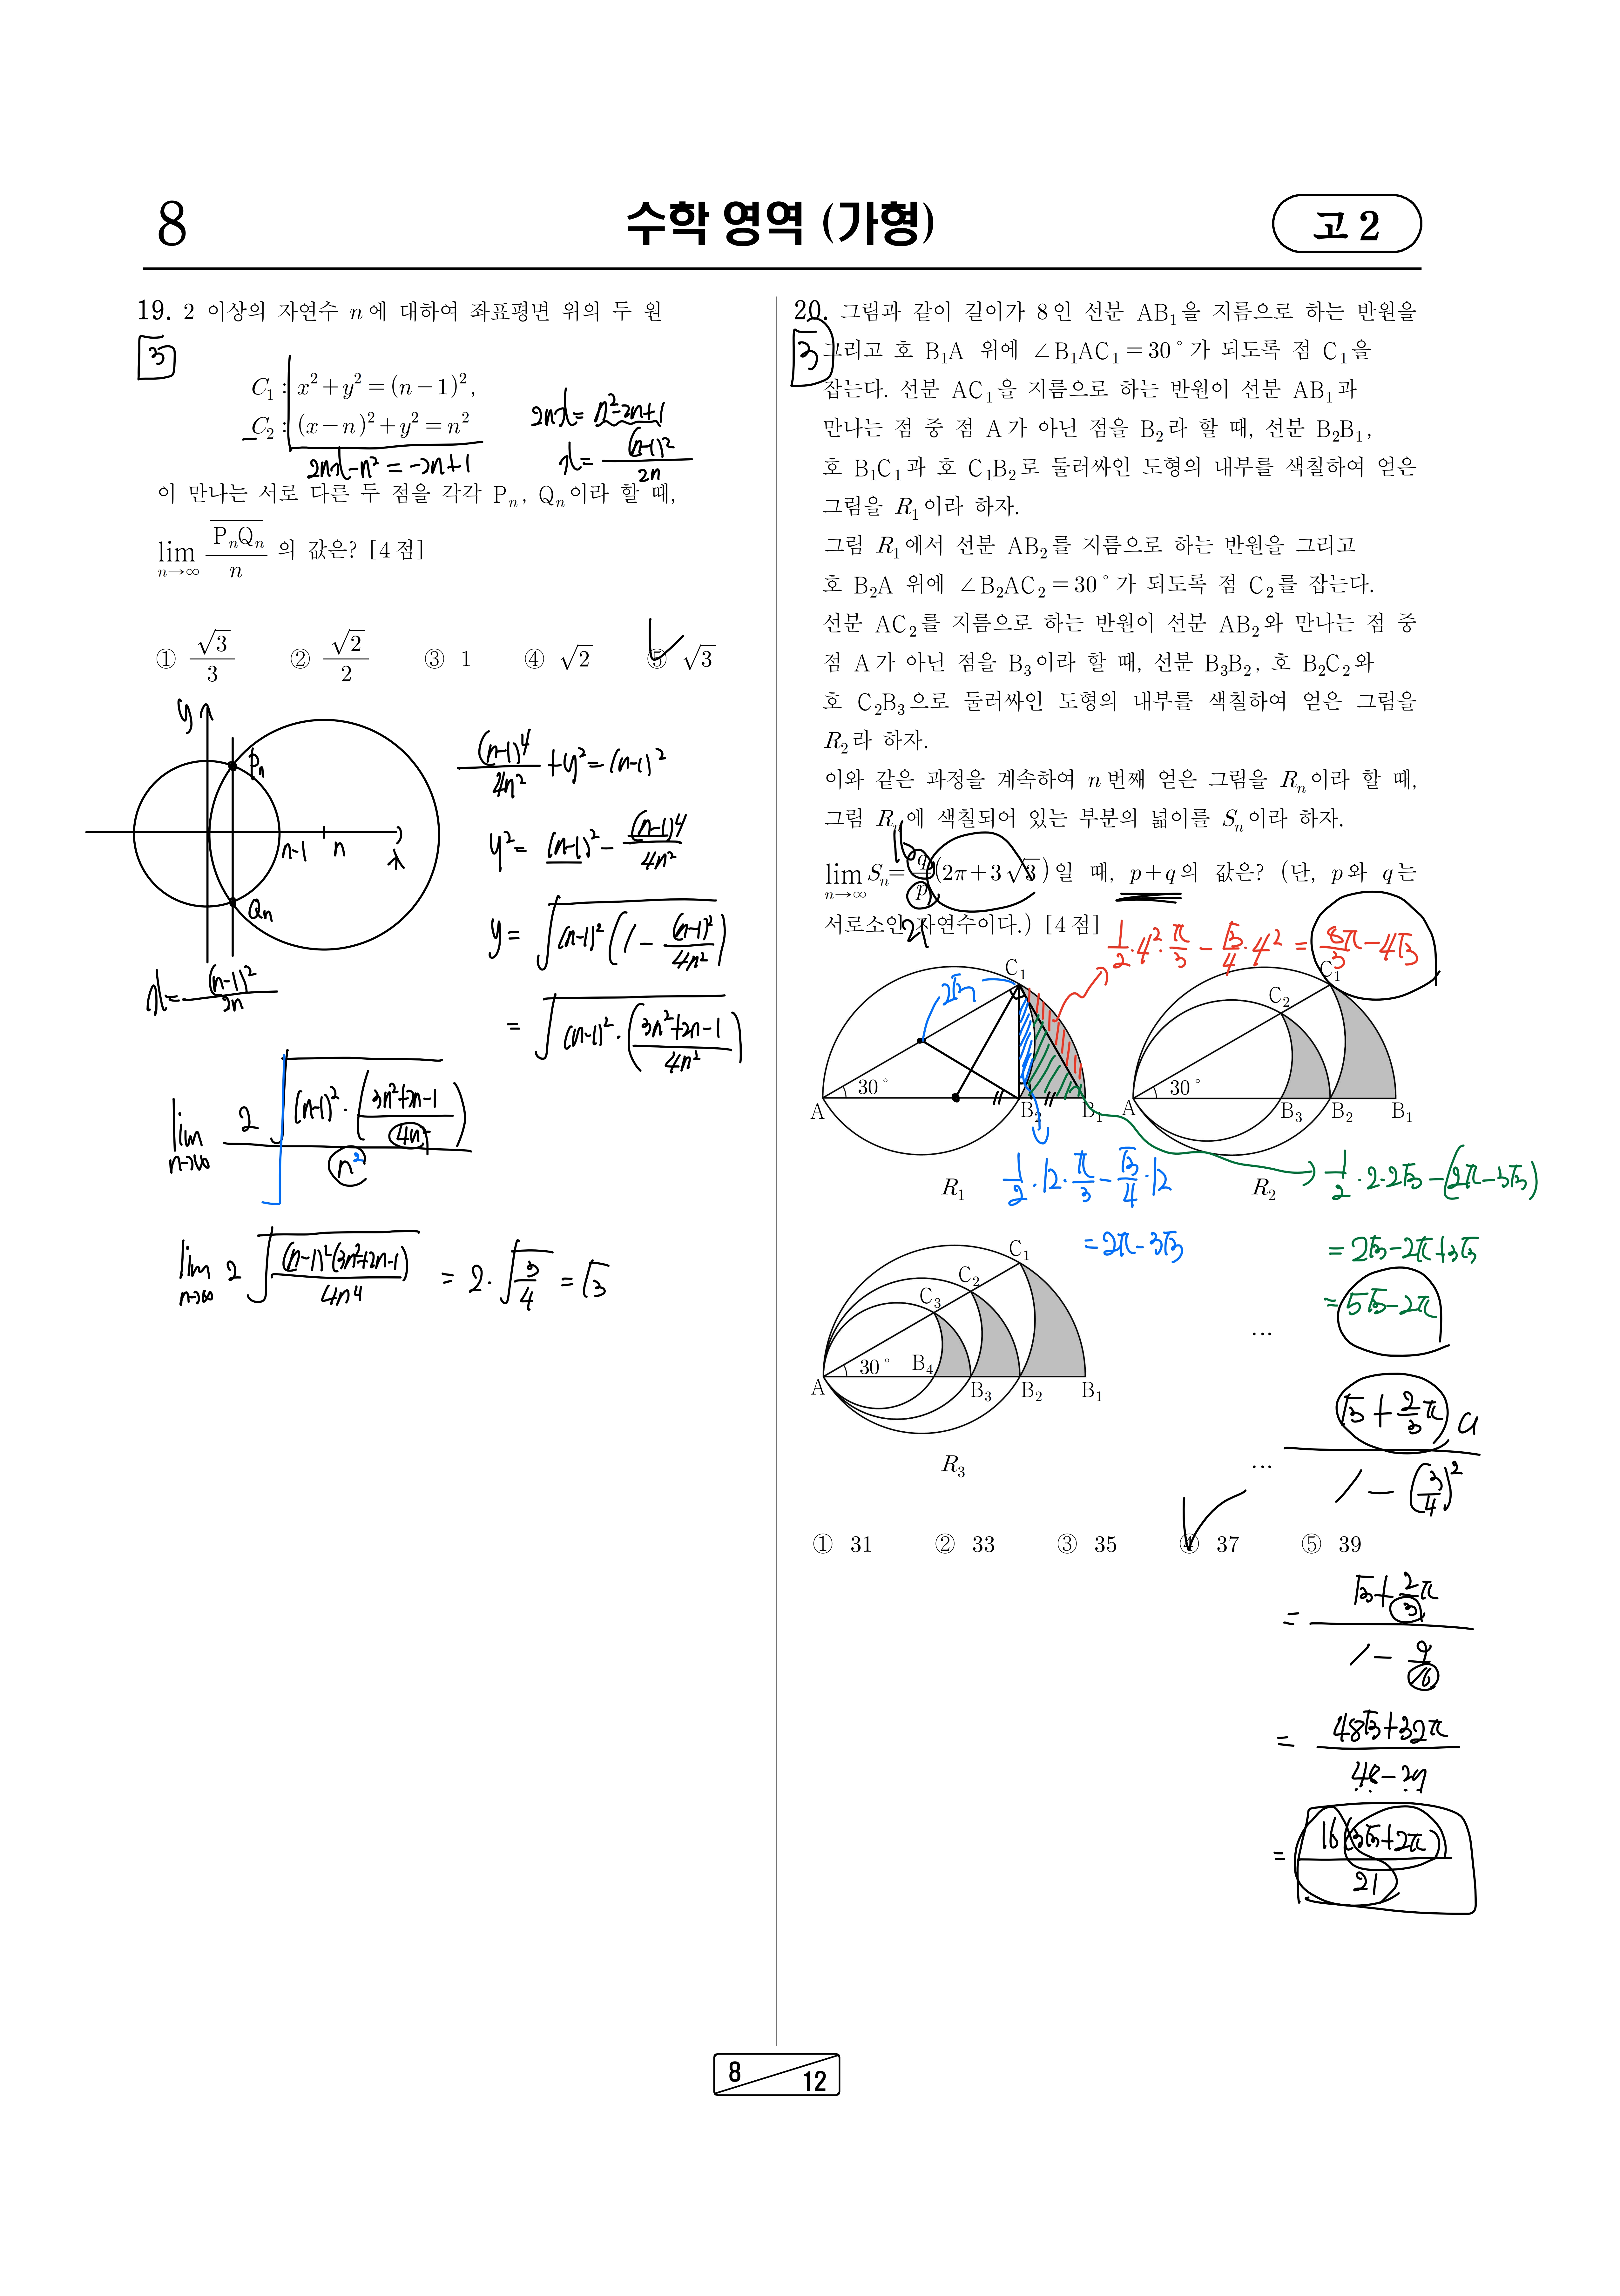 8
수학 영역 (가형)
고 2
19. 2 이상의 자연수 n에 대하여 좌표평면 위의 두 원
3
C₁ : x² + y² = (n-1)²,
C₂ : (x-n)² + y² = n²
2nx - n² = -2n+1
2nx = n²-2n+1
x = (n-1)²/2n
이 만나는 서로 다른 두 점을 각각 Pₙ, Qₙ이라 할 때,
lim n→∞ PₙQₙ/n 의 값은? [4점]
① √3/3 ② √2/2 ③ 1 ④ √2 ⑤ √3
y
Pₙ
n-1
n
x
Qₙ
x = (n-1)²/2n
(n-1)⁴/4n² + y² = (n-1)²
y² = (n-1)² - (n-1)⁴/4n²
y = √((n-1)²(1 - (n-1)²/4n²))
= √((n-1)²·(3n²+2n-1/4n²))
lim n→∞ 2√((n-1)²·(3n²+2n-1/4n²))/n²
lim n→∞ 2√((n-1)²(3n²+2n-1)/4n⁴) = 2·√(3/4) = √3
20. 그림과 같이 길이가 8인 선분 AB₁을 지름으로 하는 반원을
3
그리고 호 B₁A 위에 ∠B₁AC₁ = 30°가 되도록 점 C₁을
잡는다. 선분 AC₁을 지름으로 하는 반원이 선분 AB₁과
만나는 점 중 점 A가 아닌 점을 B₂라 할 때, 선분 B₂B₁,
호 B₁C₁과 호 C₁B₂로 둘러싸인 도형의 내부를 색칠하여 얻은
그림을 R₁이라 하자.
그림 R₁에서 선분 AB₂를 지름으로 하는 반원을 그리고
호 B₂A 위에 ∠B₂AC₂ = 30°가 되도록 점 C₂를 잡는다.
선분 AC₂를 지름으로 하는 반원이 선분 AB₂와 만나는 점 중
점 A가 아닌 점을 B₃이라 할 때, 선분 B₃B₂, 호 B₂C₂와
호 C₂B₃으로 둘러싸인 도형의 내부를 색칠하여 얻은 그림을
R₂라 하자.
이와 같은 과정을 계속하여 n번째 얻은 그림을 Rₙ이라 할 때,
그림 Rₙ에 색칠되어 있는 부분의 넓이를 Sₙ이라 하자.
16
lim n→∞ Sₙ = q/p(2π+3√3)일 때, p+q의 값은? (단, p와 q는
서로소인 자연수이다.) [4점]
21
1/2·4²·π/3 - √3/4·4² = 8/3π - 4√3
2√3
C₁
30°
A
B₂
B₁
R₁
C₁
C₂
30°
A
B₃
B₂
B₁
R₂
1/2·12·π/3 - √3/4·12
= 2π - 3√3
1/2·2·2√3 - (2π-3√3)
= 2√3 - 2π + 3√3
= 5√3 - 2π
C₁
C₂
C₃
30°
A
B₄
B₃
B₂
B₁
R₃
…
…
√3 + 2/3π
1 - (3/4)²
① 31 ② 33 ③ 35 ④ 37 ⑤ 39
= √3 + 2/3π
1 - 9/16
= 48√3+32π
48-27
= 16(3√3+2π)
21
8
12